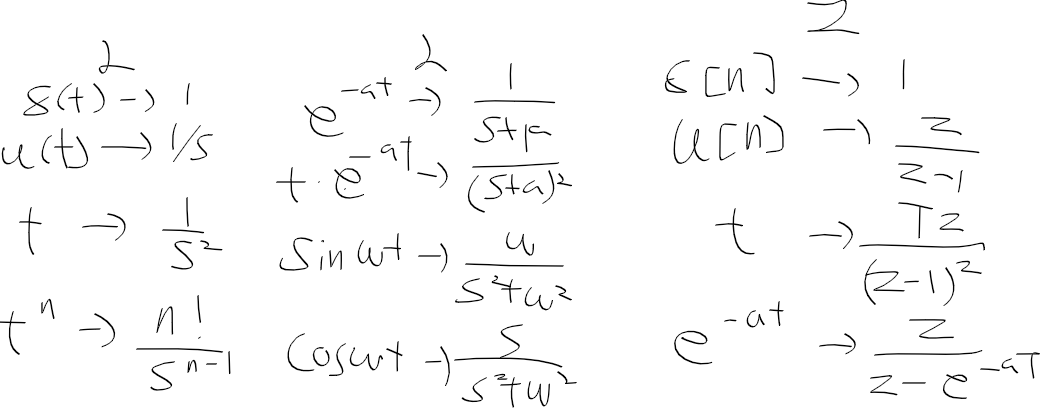 ℒ
δ(t) → 1
u(t) → 1/s
t → 1/s²
tⁿ → n!/sⁿ⁻¹
ℒ
e^(-at) → 1/(s+a)
t·e^(-at) → 1/(s+a)²
sin wt → w/(s²+w²)
cos wt → s/(s²+w²)
Z
δ[n] → 1
u[n] → z/(z-1)
t → Tz/(z-1)²
e^(-at) → z/(z-e^(-aT))